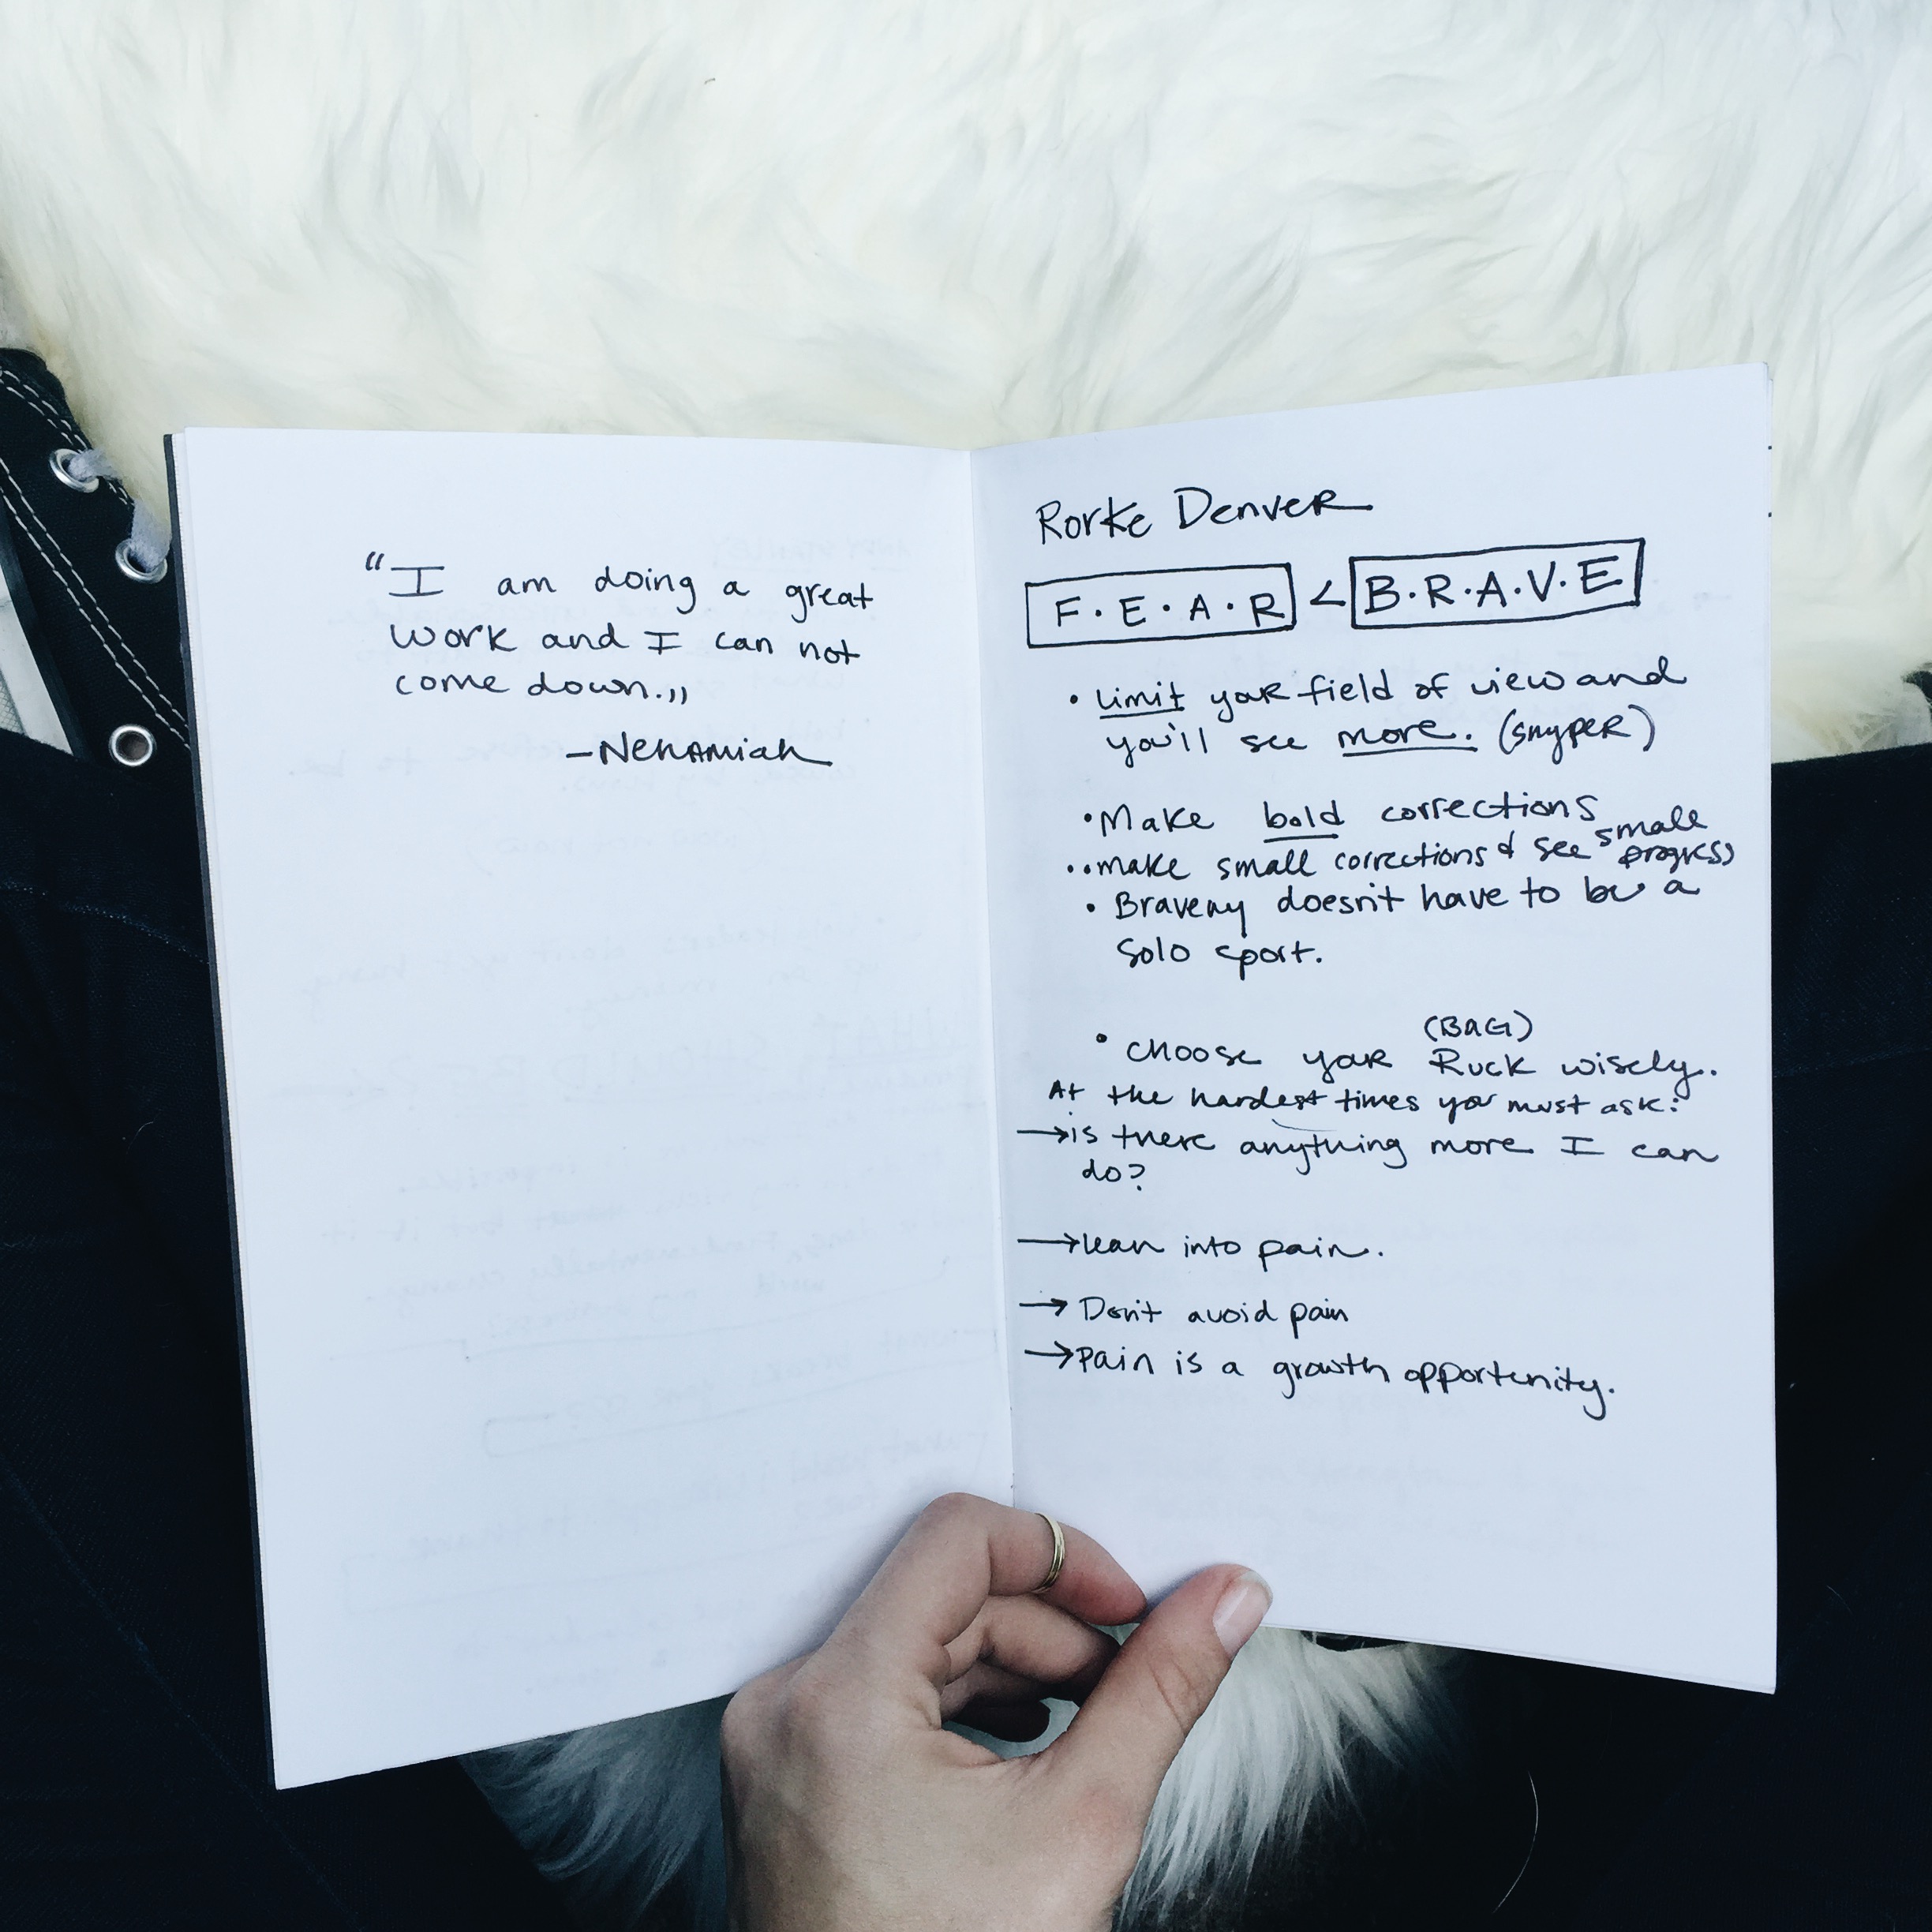 “I am doing a great
work and I can not
come down.”
-Nehamiah
Rorke Denver
F.E.A.R < B.R.A.V.E
• limit your field of view and
you'll see more. (snyper)
• Make bold corrections
•• make small corrections & see small
progress
• Bravery doesn't have to be a
solo sport.
(BAG)
• choose your Ruck wisely.
At the hardest times you must ask:
→ is there anything more I can
do?
→ lean into pain.
→ Don't avoid pain
→ pain is a growth opportunity.